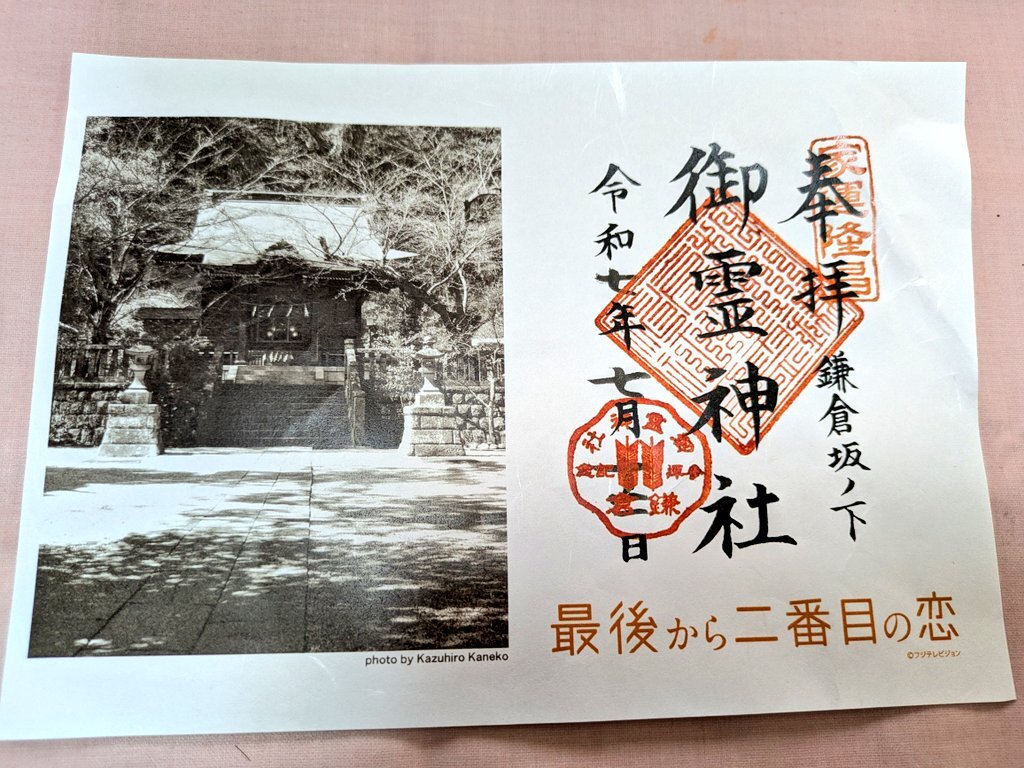 奉拝
鎌倉坂ノ下
家運隆昌
御霊神社
令和七年
七月十二日
鎌倉
最後から二番目の恋
©フジテレビジョン
photo by Kazuhiro Kaneko